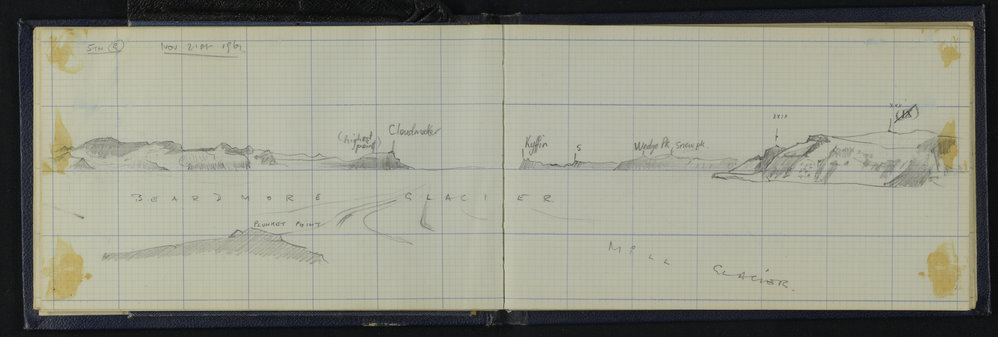 STN (R)
NOV 21st 1961
(highest
point)
Cloudmaker
Kyffin
S
Wedge Pk, Snow pk
XXIX
XXX
(IX)
BEARDMORE GLACIER
PLUNKET POINT
MILL GLACIER.